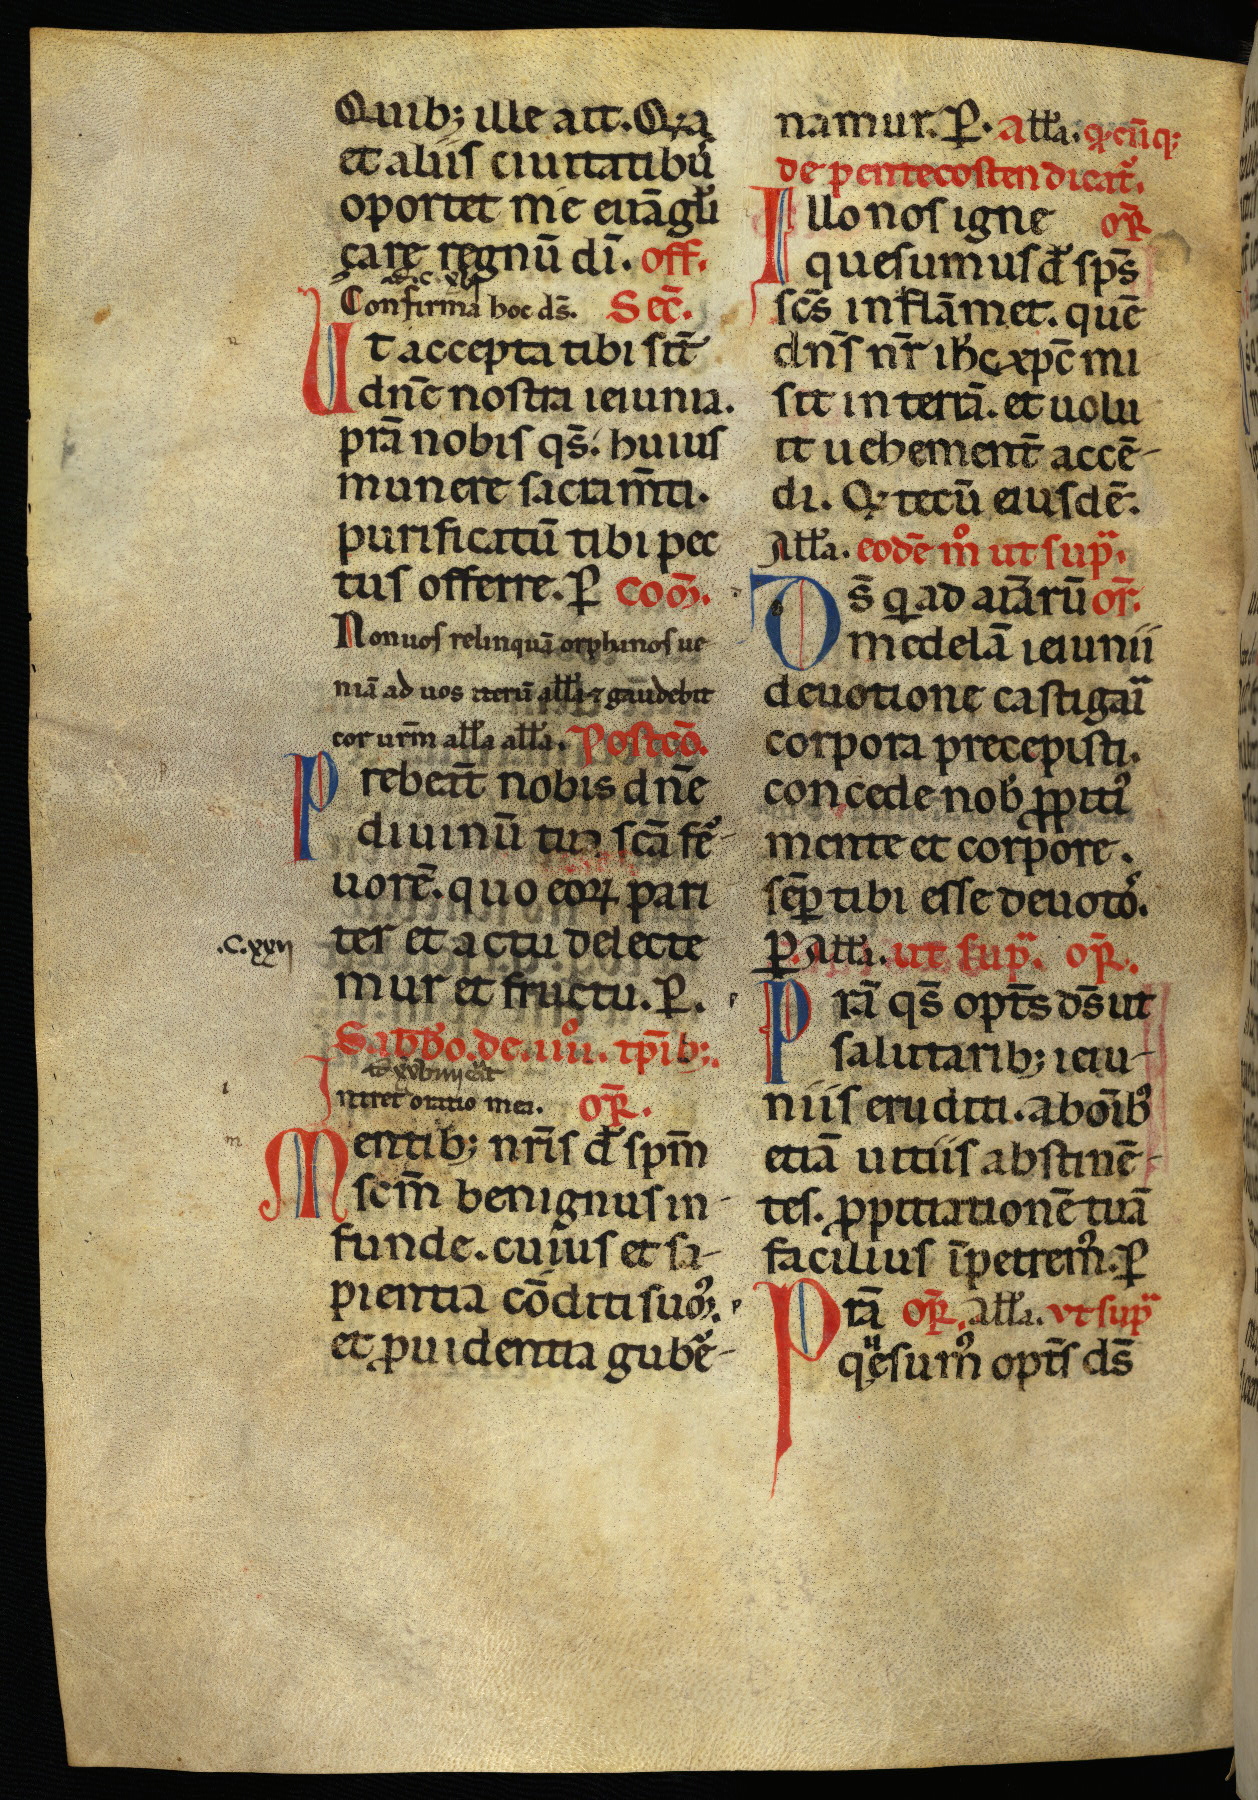 Quib; ille ait. Q2a
et aliis ciuitatibu᷒
oportet me euāgl̄i
care regnū di̅. off.
Confirma hoc ds̄. Sec̄.
Ut accepta tibi sīt
dnē nostra ieiunia.
prā nobis qs̄. huius
munere sacram̄ti.
purificatū tibi pec
tus offerre. P̄ com̄.
Non uos relinquā orphanos ue
niā ad uos iterū all̄a ⁊ gaudebit
cor ur̄m all̄a all̄a. Postcō.
Prebeāt nobis dnē
diuinū tua sc̄a fe᷒-
uorē. quo eoꝝ pari
.C.xxij
ter et actu delecte
mur et fructu. P̄.
Sabb̄o. de .iiiioʳ. tp̄ib;.
Intret oratio mea. or̄.
Mentib; nr̄is d̄ sp̄m
sc̄m benignus in-
funde. cuius et sa-
pientia cōditi sum᷒.
et ꝓuidentia gube᷒-
namur. P̄. all̄a. q̄cūq;
de pentecosten dicat᷒.
Illo nos igne or̄
quesumus d̄ sp̄s
sc̄s inflāmet. quē
dn̄s nr̄ ih̄c xp̄c mi
sit in terrā. et uolu
it uehement̄ accē-
di. Q2 tecū eiusdē.
All̄a. eodē mº ut supᵃ.
Ds̄ q̄ ad aīarū or̄.
medelā ieiunii
deuotione castigaī
corpora precepisti.
concede nob᷒ ꝓpiti᷒
mente et corpore.
sēꝑ tibi esse deuoto᷒.
P̄. All̄a. ut supᵃ. or̄.
Prā qs̄ opt̄s ds̄ ut
salutarib; ieiu-
niis eruditi. ab oīb᷒
etiā uitiis abstinē-
tes. ꝓpitiationē tuā
facilius īpetrem᷒. P̄
Prā or̄. All̄a. vt supᵃ
quesum᷒ opt̄s ds̄